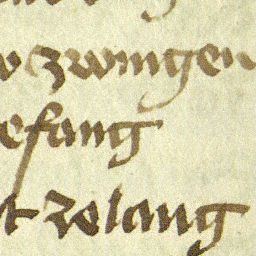 zwingen
efang
t zelang